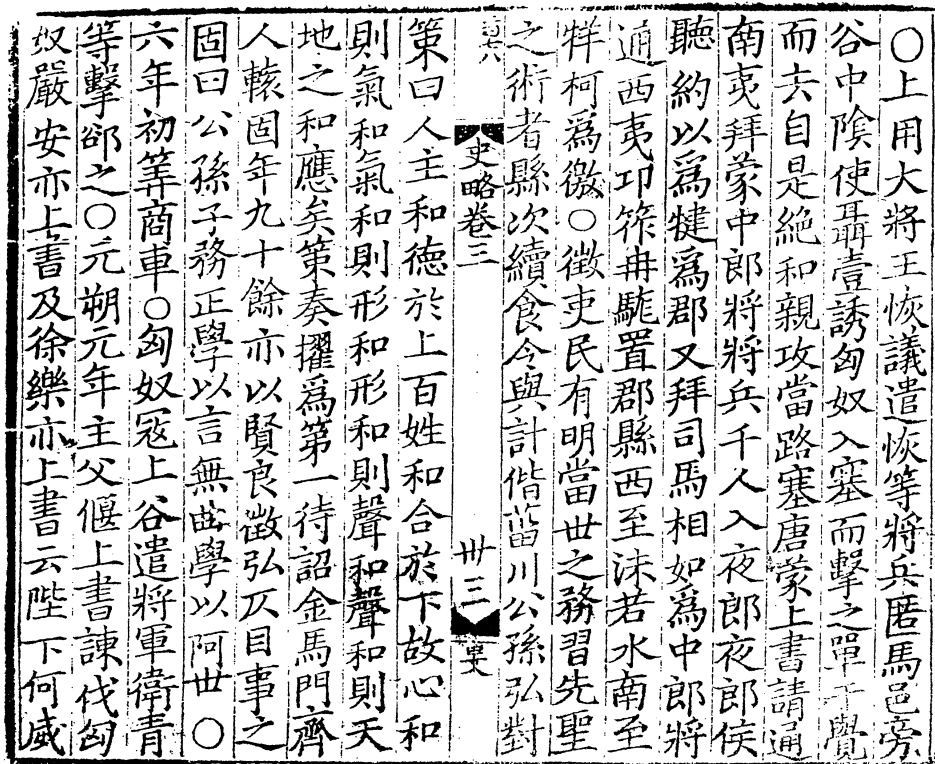 ○上用大將王恢議遣恢等將兵匿馬邑旁
谷中陰使聶壹誘匈奴入塞而擊之單于覺
而去自是絶和親攻當路塞唐蒙上書請通
南夷拜蒙中郎將將兵千人入夜郎夜郎侯
聽約以爲犍爲郡又拜司馬相如爲中郎將
通西夷邛筰冉駹置郡縣西至沬若水南至
牂柯爲徼○徵吏民有明當世之務習先聖
之術者縣次續食令與計偕菑川公孫弘對
史略卷三
卅三
策曰人主和德於上百姓和合於下故心和
則氣和氣和則形和形和則聲和聲和則天
地之和應矣策奏擢爲第一待詔金馬門齊
人轅固年九十餘亦以賢良徵弘仄目事之
固曰公孫子務正學以言無曲學以阿世○
六年初筭商車○匈奴宼上谷遣將軍衛青
等擊郤之○元朔元年主父偃上書諫伐匈
奴嚴安亦上書及徐樂亦上書云陛下何威